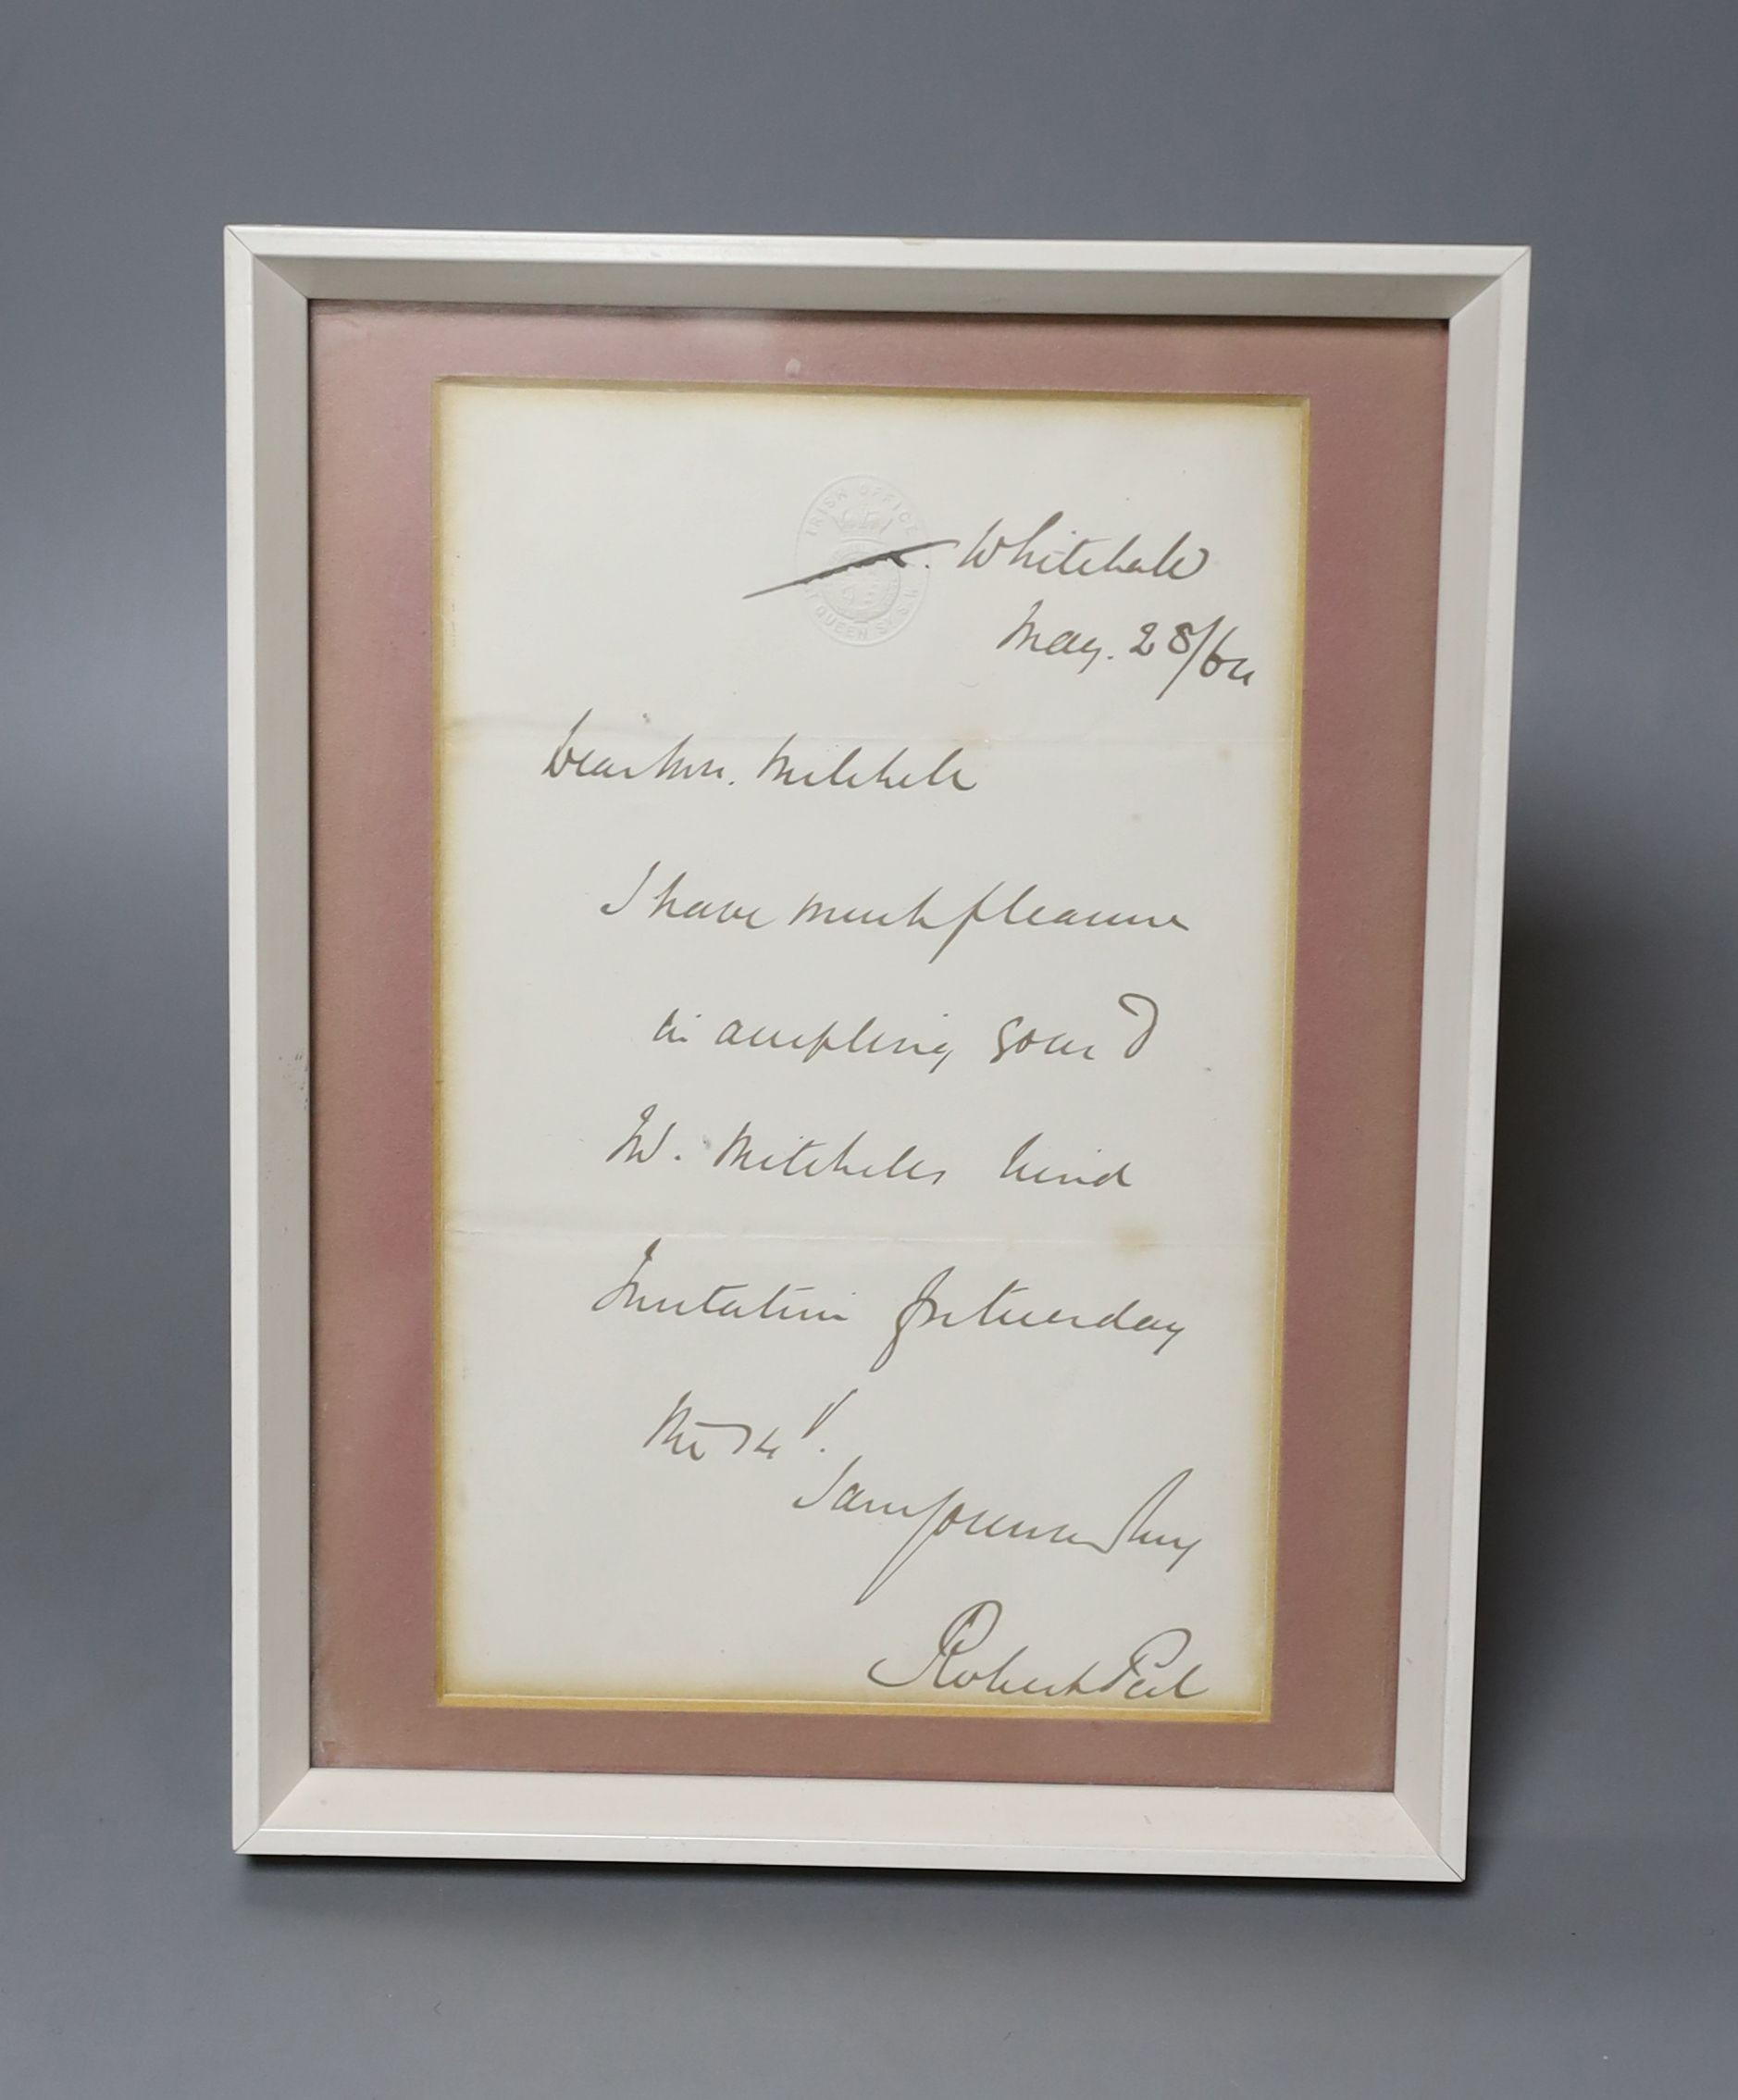 IRISH OFFICE
QUEEN ST. S.W.
Whitehall
May. 28/64
Dear Mrs. Mitchell
I have much pleasure
in accepting your &
Mr. Mitchells kind
Invitation for Tuesday
the 14
I am yours very truly
Robert Peel